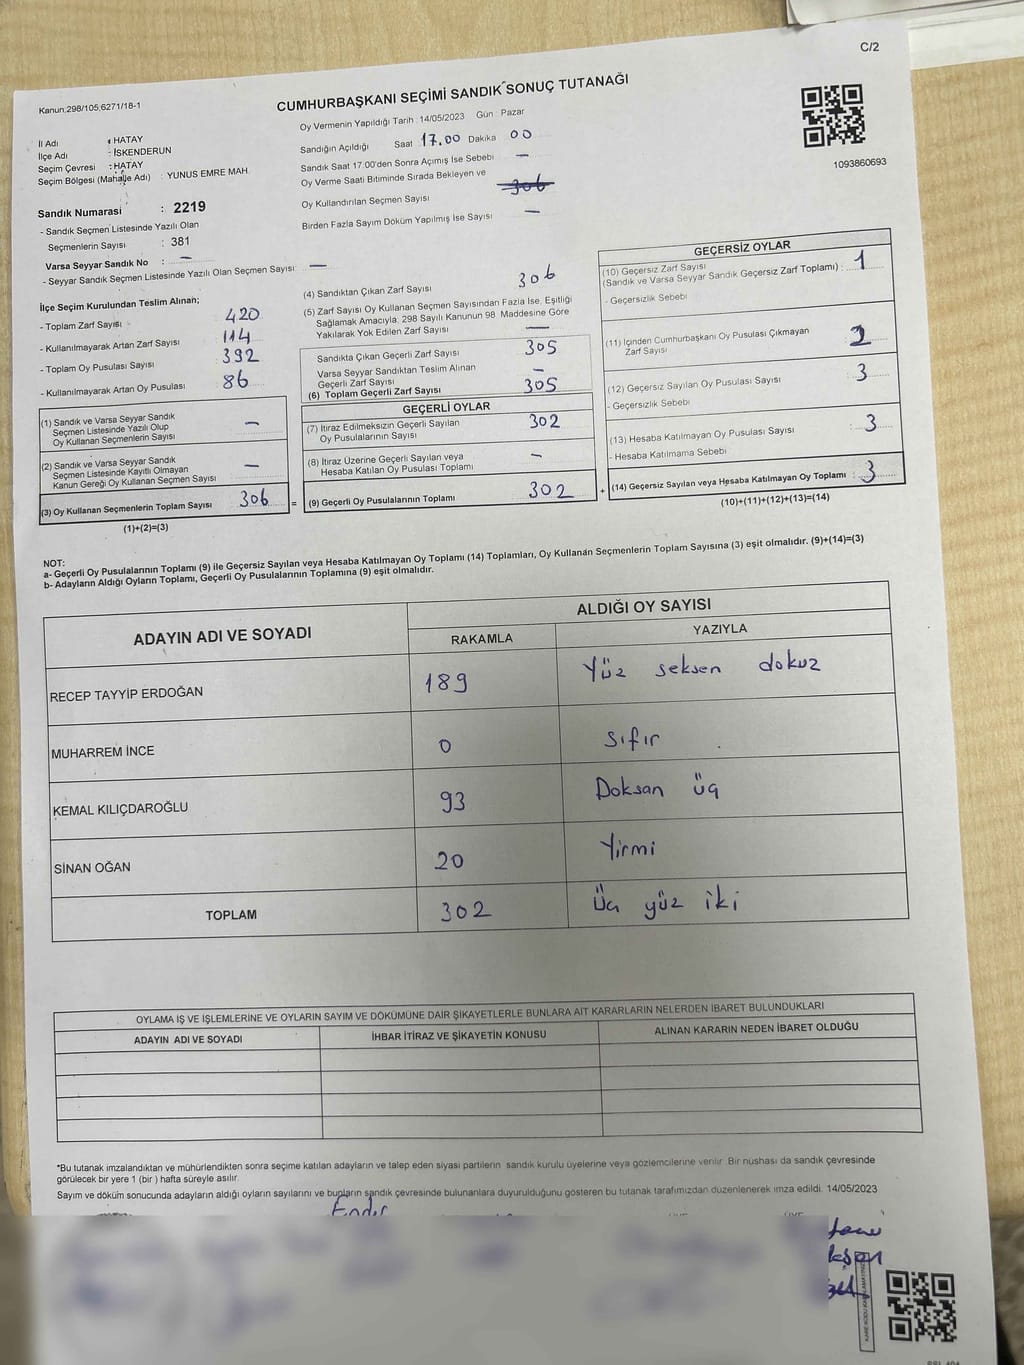 C/2
Kanun:298/105;6271/18-1
CUMHURBAŞKANI SEÇİMİ SANDIK SONUÇ TUTANAĞI
Oy Vermenin Yapıldığı Tarih : 14/05/2023 Gün : Pazar
İl Adı : HATAY
İlçe Adı : İSKENDERUN
Seçim Çevresi : HATAY
Seçim Bölgesi (Mahalle Adı) : YUNUS EMRE MAH.
Sandık Numarası : 2219
- Sandık Seçmen Listesinde Yazılı Olan
Seçmenlerin Sayısı : 381
Varsa Seyyar Sandık No : —
- Seyyar Sandık Seçmen Listesinde Yazılı Olan Seçmen Sayısı: —
Sandığın Açıldığı Saat 17.00 Dakika 00
Sandık Saat 17.00'den Sonra Açımış İse Sebebi —
Oy Verme Saati Bitiminde Sırada Bekleyen ve
Oy Kullandırılan Seçmen Sayısı 306
Birden Fazla Sayım Döküm Yapılmış İse Sayısı —
1093860693
İlçe Seçim Kurulundan Teslim Alınan;
- Toplam Zarf Sayısı : 420
- Kullanılmayarak Artan Zarf Sayısı : 114
- Toplam Oy Pusulası Sayısı : 392
- Kullanılmayarak Artan Oy Pusulası : 86
(1) Sandık ve Varsa Seyyar Sandık
Seçmen Listesinde Yazılı Olup
Oy Kullanan Seçmenlerin Sayısı —
(2) Sandık ve Varsa Seyyar Sandık
Seçmen Listesinde Kayıtlı Olmayan
Kanun Gereği Oy Kullanan Seçmen Sayısı —
(3) Oy Kullanan Seçmenlerin Toplam Sayısı 306 =
(1)+(2)=(3)
(4) Sandıktan Çıkan Zarf Sayısı 306
(5) Zarf Sayısı Oy Kullanan Seçmen Sayısından Fazla İse, Eşitliği
Sağlamak Amacıyla, 298 Sayılı Kanunun 98 Maddesine Göre
Yakılarak Yok Edilen Zarf Sayısı —
Sandıkta Çıkan Geçerli Zarf Sayısı 305
Varsa Seyyar Sandıktan Teslim Alınan
Geçerli Zarf Sayısı —
(6) Toplam Geçerli Zarf Sayısı 305
GEÇERLİ OYLAR
(7) İtiraz Edilmeksizin Geçerli Sayılan
Oy Pusulalarının Sayısı 302
(8) İtiraz Üzerine Geçerli Sayılan veya
Hesaba Katılan Oy Pusulası Toplamı —
(9) Geçerli Oy Pusulalarının Toplamı 302 +
GEÇERSİZ OYLAR
(10) Geçersiz Zarf Sayısı
(Sandık ve Varsa Seyyar Sandık Geçersiz Zarf Toplamı) : 1
- Geçersizlik Sebebi
(11) İçinden Cumhurbaşkanı Oy Pusulası Çıkmayan
Zarf Sayısı
(12) Geçersiz Sayılan Oy Pusulası Sayısı : 3
- Geçersizlik Sebebi
(13) Hesaba Katılmayan Oy Pusulası Sayısı : 3
- Hesaba Katılmama Sebebi
(14) Geçersiz Sayılan veya Hesaba Katılmayan Oy Toplamı : 3
(10)+(11)+(12)+(13)=(14)
NOT:
a- Geçerli Oy Pusulalarının Toplamı (9) ile Geçersiz Sayılan veya Hesaba Katılmayan Oy Toplamı (14) Toplamları, Oy Kullanan Seçmenlerin Toplam Sayısına (3) eşit olmalıdır. (9)+(14)=(3)
b- Adayların Aldığı Oyların Toplamı, Geçerli Oy Pusulalarının Toplamına (9) eşit olmalıdır.
ADAYIN ADI VE SOYADI
ALDIĞI OY SAYISI
RAKAMLA YAZIYLA
RECEP TAYYİP ERDOĞAN 189 Yüz seksen dokuz
MUHARREM İNCE 0 sıfır
KEMAL KILIÇDAROĞLU 93 Doksan üç
SİNAN OĞAN 20 Yirmi
TOPLAM 302 Üç yüz iki
OYLAMA İŞ VE İŞLEMLERİNE VE OYLARIN SAYIM VE DÖKÜMÜNE DAİR ŞİKAYETLERLE BUNLARA AİT KARARLARIN NELERDEN İBARET BULUNDUKLARI
ADAYIN ADI VE SOYADI İHBAR İTİRAZ VE ŞİKAYETİN KONUSU ALINAN KARARIN NEDEN İBARET OLDUĞU
*Bu tutanak imzalandıktan ve mühürlendikten sonra seçime katılan adayların ve talep eden siyasi partilerin sandık kurulu üyelerine veya gözlemcilerine verilir. Bir nüshası da sandık çevresinde
görülecek bir yere 1 (bir ) hafta süreyle asılır.
Sayım ve döküm sonucunda adayların aldığı oyların sayılarını ve bunların sandık çevresinde bulunanlara duyurulduğunu gösteren bu tutanak tarafımızdan düzenlenerek imza edildi. 14/05/2023